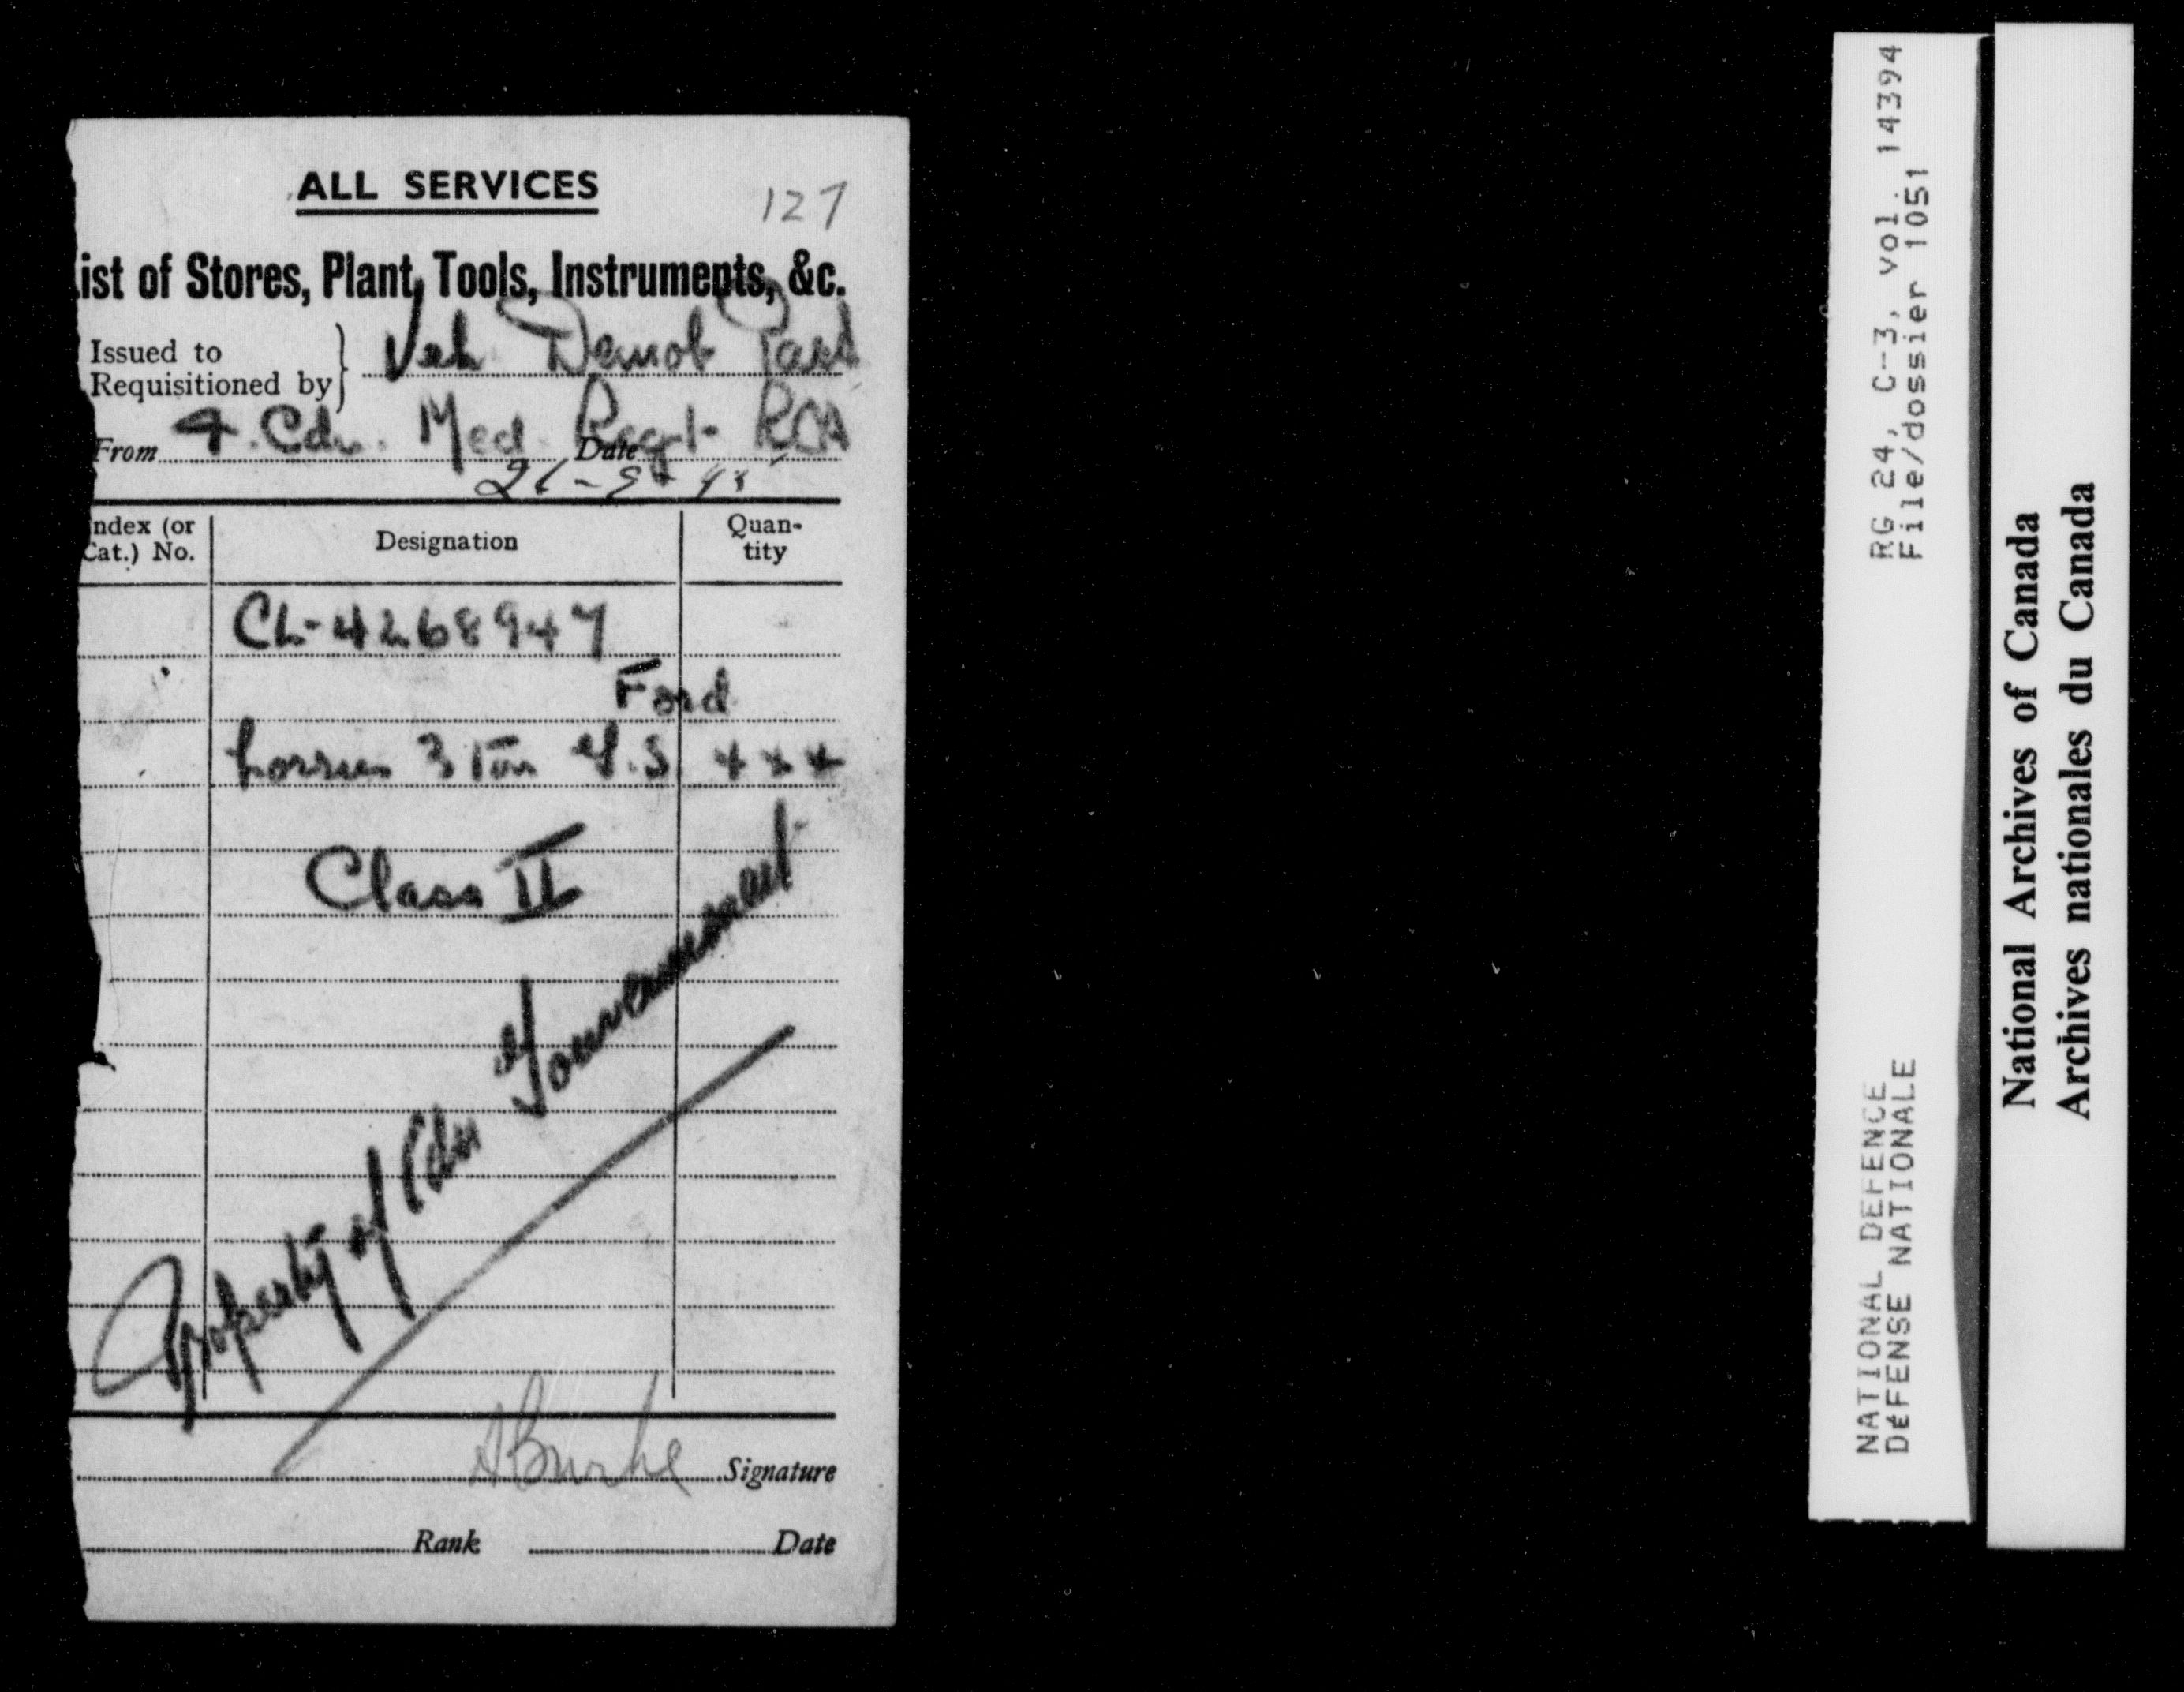 ALL SERVICES
127
ist of Stores, Plant, Tools, Instruments, &c.
Issued to
Requisitioned by } Veh Demob Park
From 4. Cdn. Med. Regt. RCA
Date 21-9-45
Index (or Cat.) No. Designation Quan-tity
CL-4268947
Ford
Lorries 3 Ton G.S 4x4
Class II
Property of Cdn Gouvernement
ABurke Signature
Rank Date
RG 24, C-3, vol. 14394
File/dossier 1051
NATIONAL DEFENCE
DEFENSE NATIONALE
National Archives of Canada
Archives nationales du Canada